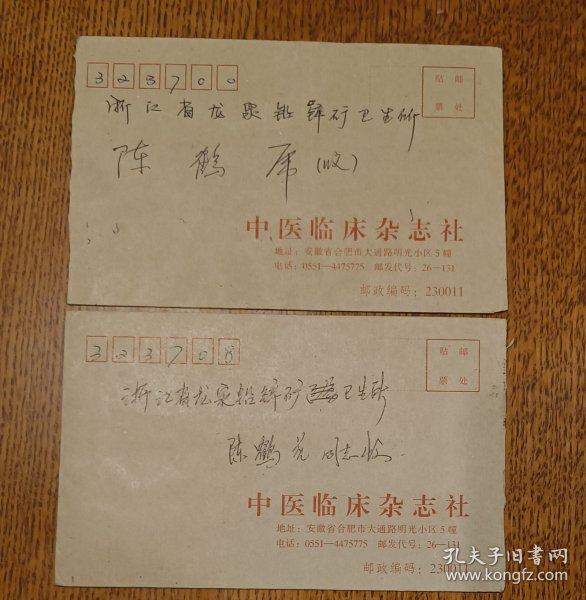 323700
贴 邮
票 处
浙江省龙泉铅锌矿卫生所
陈鹤(收)
中医临床杂志社
地址：安徽省合肥市大通路明光小区5幢
电话：0551—4475775 邮发代号：26—131
邮政编码：230011
323708
贴 邮
票 处
浙江省龙泉铅锌矿卫生所
陈鹤同志收
中医临床杂志社
地址：安徽省合肥市大通路明光小区5幢
电话：0551—4475775 邮发代号：26—131
邮政编码：230011
孔夫子旧书网
www.kongfz.com